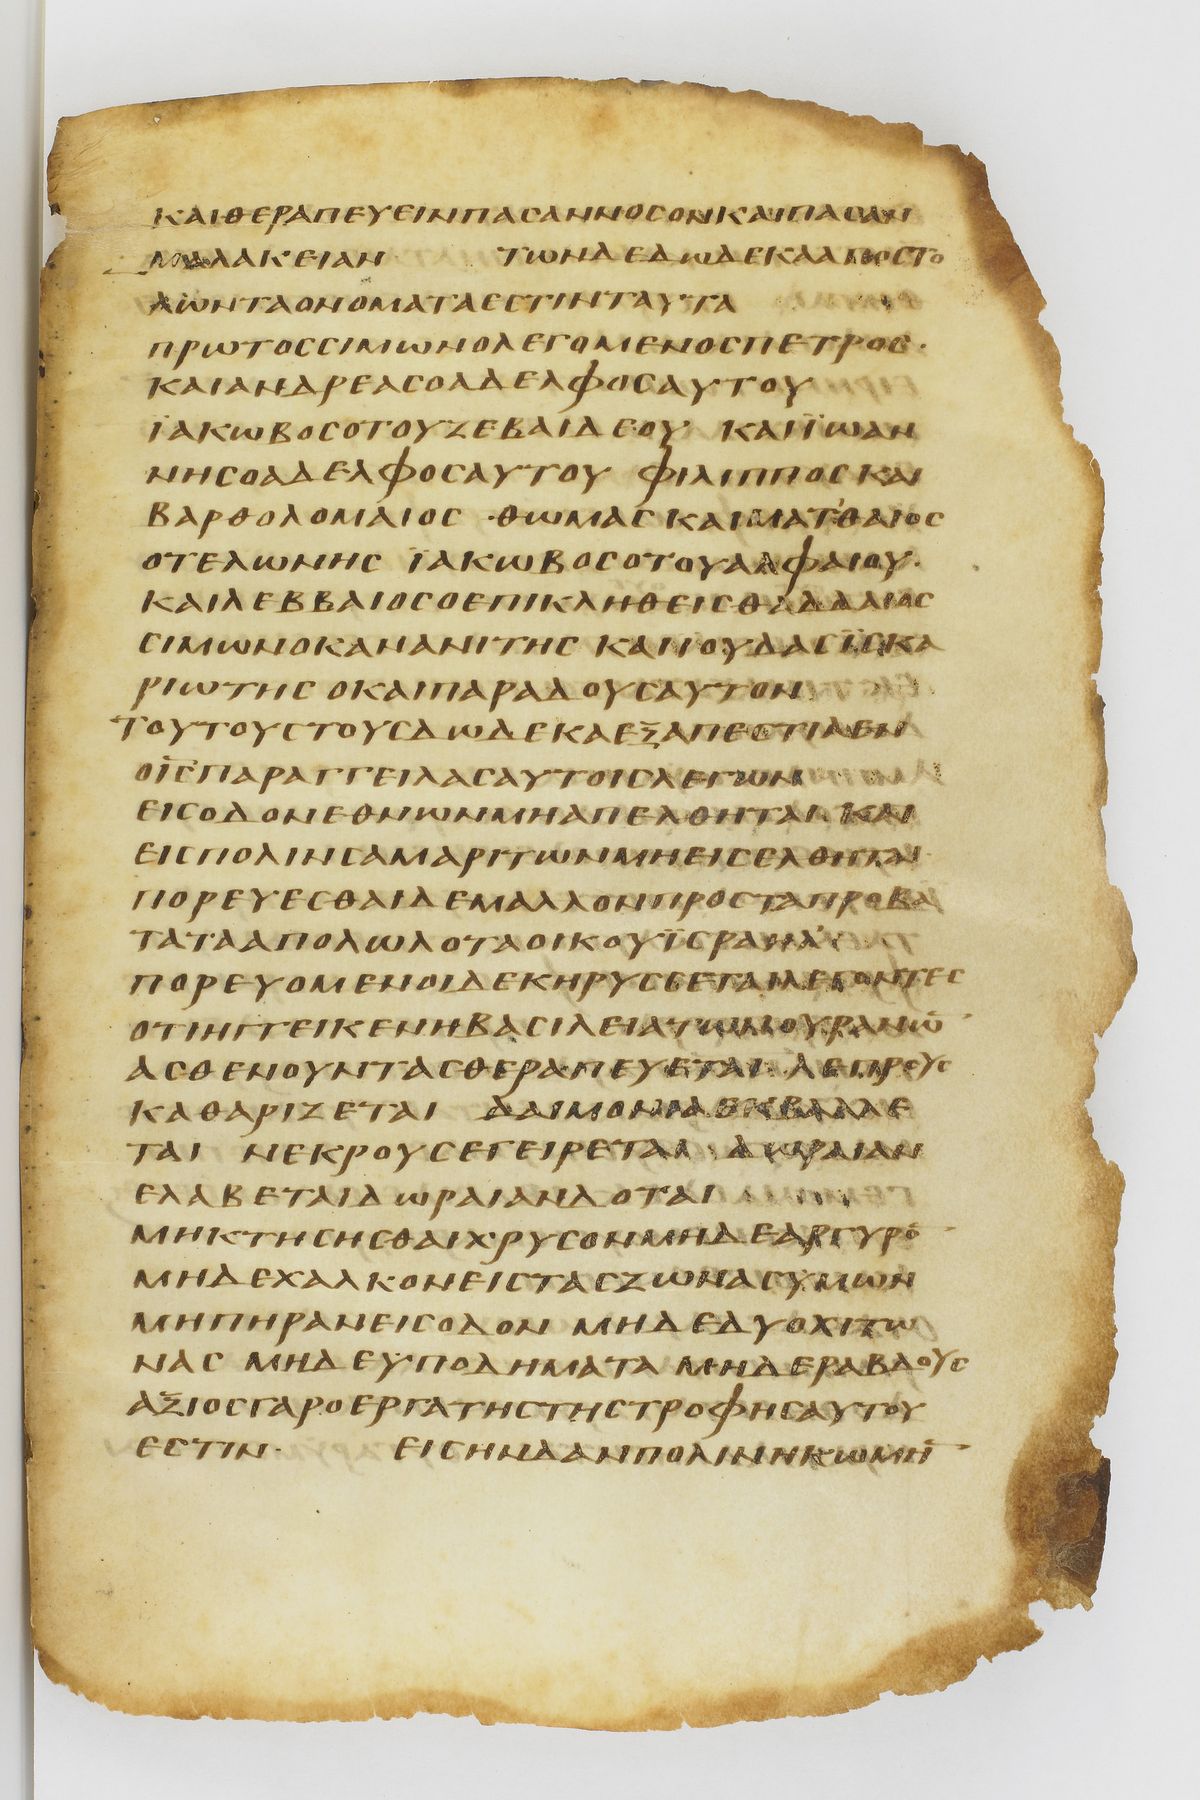 ΚΑΙΘΕΡΑΠΕΥΕΙΝΠΑϹΑΝΝΟϹΟΝΚΑΙΠΑϹΑΝ
ΜΑΛΑΚΕΙΑΝ ΤΩΝΔΕΔΩΔΕΚΑΑΠΟϹΤΟ
ΛΩΝΤΑΟΝΟΜΑΤΑΕϹΤΙΝΤΑΥΤΑ
ΠΡΩΤΟϹϹΙΜΩΝΟΛΕΓΟΜΕΝΟϹΠΕΤΡΟϹ·
ΚΑΙΑΝΔΡΕΑϹΟΑΔΕΛΦΟϹΑΥΤΟΥ
ΪΑΚΩΒΟϹΟΤΟΥΖΕΒΑΙΔΕΟΥ ΚΑΙΪΩΑΝ
ΝΗϹΟΑΔΕΛΦΟϹΑΥΤΟΥ ΦΙΛΙΠΠΟϹΚΑΙ
ΒΑΡΘΟΛΟΜΑΙΟϹ ·ΘΩΜΑϹΚΑΙΜΑΤ'ΘΑΙΟϹ
ΟΤΕΛΩΝΗϹ ΪΑΚΩΒΟϹΟΤΟΥΑΛΦΑΙΟΥ·
ΚΑΙΛΕΒΒΑΙΟϹΟΕΠΙΚΛΗΘΕΙϹΘΑΔΔΑΙΟϹ
ϹΙΜΩΝΟΚΑΝΑΝΙΤΗϹ ΚΑΙΪΟΥΔΑϹΪϹΚΑ
ΡΙΩΤΗϹ ΟΚΑΙΠΑΡΑΔΟΥϹΑΥΤΟΝ
ΤΟΥΤΟΥϹΤΟΥϹΔΩΔΕΚΑΕΞΑΠΕϹΤΙΛΕΝ
ΟΙ̅Ϲ̅ΠΑΡΑΓΓΕΙΛΑϹΑΥΤΟΙϹΛΕΓΩΝ
ΕΙϹΟΔΟΝΕΘΝΩΝΜΗΑΠΕΛΘΗΤΑΙ ΚΑΙ
ΕΙϹΠΟΛΙΝϹΑΜΑΡΙΤΩΝΜΗΕΙϹΕΛΘΗΤΑΙ·
ΠΟΡΕΥΕϹΘΑΙΔΕΜΑΛΛΟΝΠΡΟϹΤΑΠΡΟΒΑ
ΤΑΤΑΑΠΟΛΩΛΟΤΑΟΙΚΟΥΪϹΡΑΗΛ'
ΠΟΡΕΥΟΜΕΝΟΙΔΕΚΗΡΥϹϹΕΤΑΙΛΕΓΟΝΤΕϹ
ΟΤΙΗΓΓΕΙΚΕΝΗΒΑϹΙΛΕΙΑΤΩΝΟΥΡΑΝΩ̅
ΑϹΘΕΝΟΥΝΤΑϹΘΕΡΑΠΕΥΕΤΑΙ ΛΕΠΡΟΥϹ
ΚΑΘΑΡΙΖΕΤΑΙ ΔΑΙΜΟΝΙΑΕΚΒΑΛΛΕ
ΤΑΙ ΝΕΚΡΟΥϹΕΓΕΙΡΕΤΑΙ ΔΩΡΑΙΑΝ
ΕΛΑΒΕΤΑΙΔΩΡΑΙΑΝΔΟΤΑΙ
ΜΗΚΤΗϹΗϹΘΑΙΧΡΥϹΟΝΜΗΔΕΑΡΓΥΡΟ̅
ΜΗΔΕΧΑΛΚΟΝΕΙϹΤΑϹΖΩΝΑϹΫΜΩΝ
ΜΗΠΗΡΑΝΕΙϹΟΔΟΝ ΜΗΔΕΔΥΟΧΙΤΩ
ΝΑϹ ΜΗΔΕΫΠΟΔΗΜΑΤΑ ΜΗΔΕΡΑΒΔΟΥϹ
ΑΞΙΟϹΓΑΡΟΕΡΓΑΤΗϹΤΗϹΤΡΟΦΗϹΑΥΤΟΥ
ΕϹΤΙΝ· ΕΙϹΗΝΔΑΝΠΟΛΙΝΗΚΩΜΗ̅